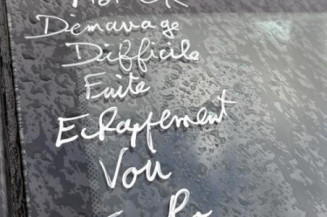 Démarage
Difficile
Fuite
Echappement
Vou